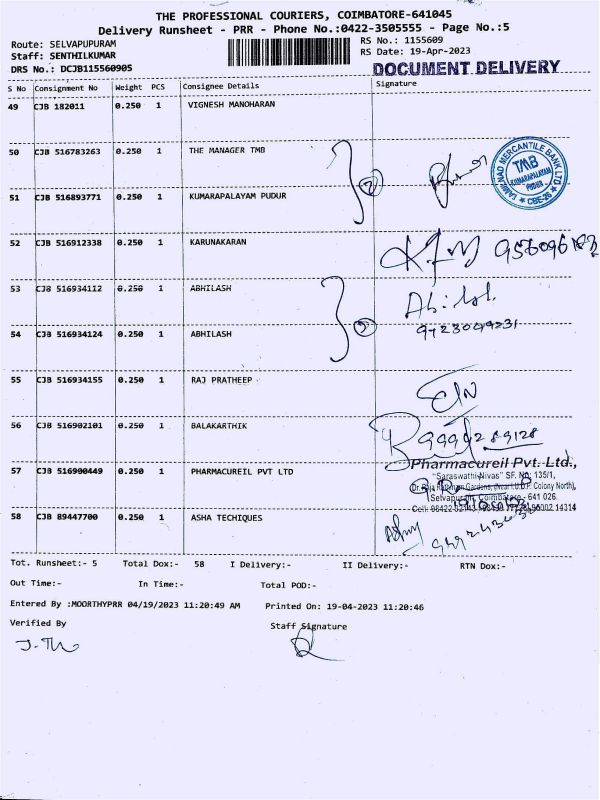 THE PROFESSIONAL COURIERS, COIMBATORE-641045
Delivery Runsheet - PRR - Phone No.:0422-3505555 - Page No.:5
Route: SELVAPUPURAM
RS No.: 1155609
Staff: SENTHILKUMAR
RS Date: 19-Apr-2023
DRS No.: DCJB115560905
DOCUMENT DELIVERY
S No Consignment No Weight PCS Consignee Details Signature
49 CJB 182011 0.250 1 VIGNESH MANOHARAN
50 CJB 516783263 0.250 1 THE MANAGER TMB
TAMILNAD MERCANTILE BANK LTD.
TMB
KUMARAPALAYAM
PUDUR
CBE-26
51 CJB 516893771 0.250 1 KUMARAPALAYAM PUDUR
2
52 CJB 516912338 0.250 1 KARUNAKARAN
53 CJB 516934112 0.250 1 ABHILASH
54 CJB 516934124 0.250 1 ABHILASH
55 CJB 516934155 0.250 1 RAJ PRATHEEP
56 CJB 516902101 0.250 1 BALAKARTHIK
Pharmacureil Pvt. Ltd.,
57 CJB 516900449 0.250 1 PHARMACUREIL PVT LTD
"Saraswathi Nivas" SF. No: 135/1,
Gardens, (Near I.O.B. Colony North),
Selvapuram, Coimbatore - 641 026.
Cell: 98422
58 CJB 89447700 0.250 1 ASHA TECHIQUES
Tot. Runsheet:- 5 Total Dox:- 58 I Delivery:- II Delivery:- RTN Dox:-
Out Time:- In Time:- Total POD:-
Entered By :MOORTHYPRR 04/19/2023 11:20:49 AM Printed On: 19-04-2023 11:20:46
Verified By Staff Signature